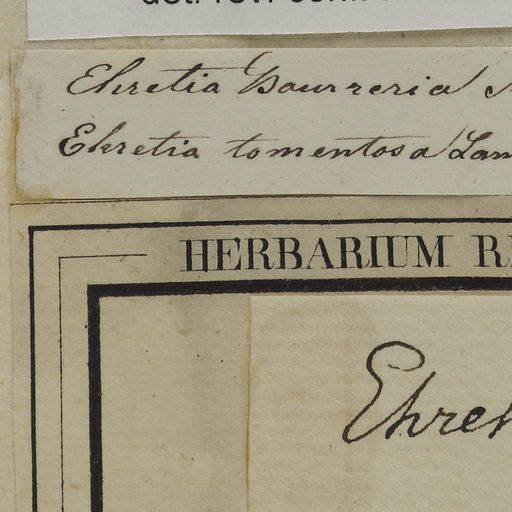 Ehretia Bourreria
Ehretia tomentosa Lam
HERBARIUM R
Ehret